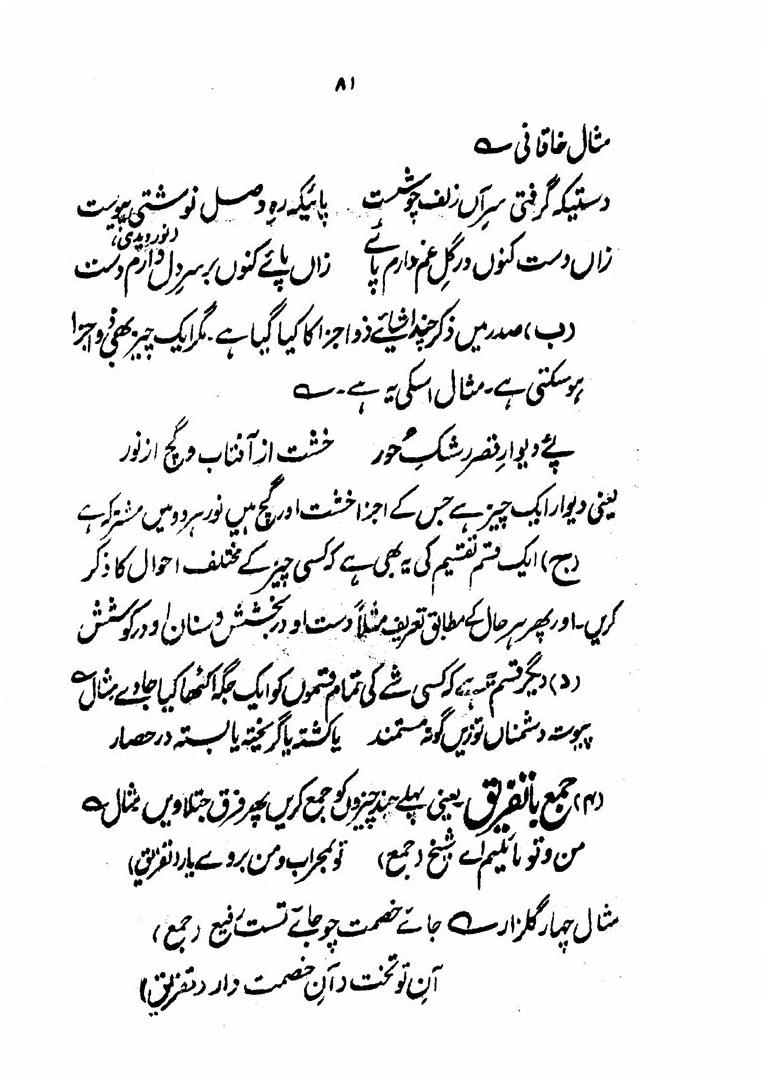 ۸۱
مثال خاقانی ؎
دستیکہ گرفتی سرِ آں زلف چو شست پائیکہ رہِ وصل نوشتی پیوست
(نوردیدی)
زاں دست کنوں در گلِ غم دارم پائے زاں پائے کنوں بر سرِ دل دارم دست
(ب) صدر میں ذکر چند اشیائے ذو اجزا کا کیا گیا ہے۔ مگر ایک چیز بھی ذو اجزا
ہو سکتی ہے۔ مثال اسکی یہ ہے۔ ؎
پئے دیوارِ قصر رشکِ حور خشت از آفتاب و گچ از نور
یعنی دیوار ایک چیز ہے جس کے اجزا خشت اور گچ ہیں نور ہر دو میں مشترک ہے
(ج) ایک قسم تقسیم کی یہ بھی ہے کہ کسی چیز کے مختلف احوال کا ذکر
کریں۔ اور پھر ہر حال کے مطابق تعریف مثلاً دست او در بخشش و سنان او در کوشش
(د) دیگر قسم یہ ہے کہ کسی شے کی تمام قسموں کو ایک جگہ اکٹھا کیا جاوے مثال ؎
پیوستہ دشمنان تو زیں گونہ مستمند یا کشتہ یا گریختہ یا بستہ در حصار
(۴) جمع با تفریق یعنی پہلے چند چیزوں کو جمع کریں پھر فرق جتلاویں مثال ؎
من و تو مائلیم اے شیخ (جمع) تو بمحراب و من بروے یار (تفریق)
مثال چہار گلزار ؎ جائے خصمت چو جائے تست رفیع (جمع)
آنِ تو تخت و آنِ خصمت دار (تفریق)